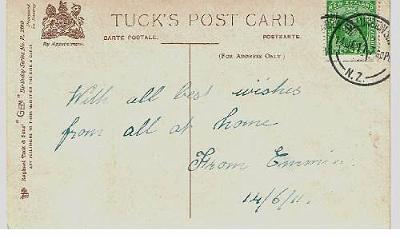 TUCK'S POST CARD
CARTE POSTALE. POSTKARTE.
By Appointment.
(FOR ADDRESS ONLY.)
N.Z.
With all best wishes
from all at home
From Emmie
14/6/11.
Raphael Tuck & Sons' "GEM" Birthday Series No.